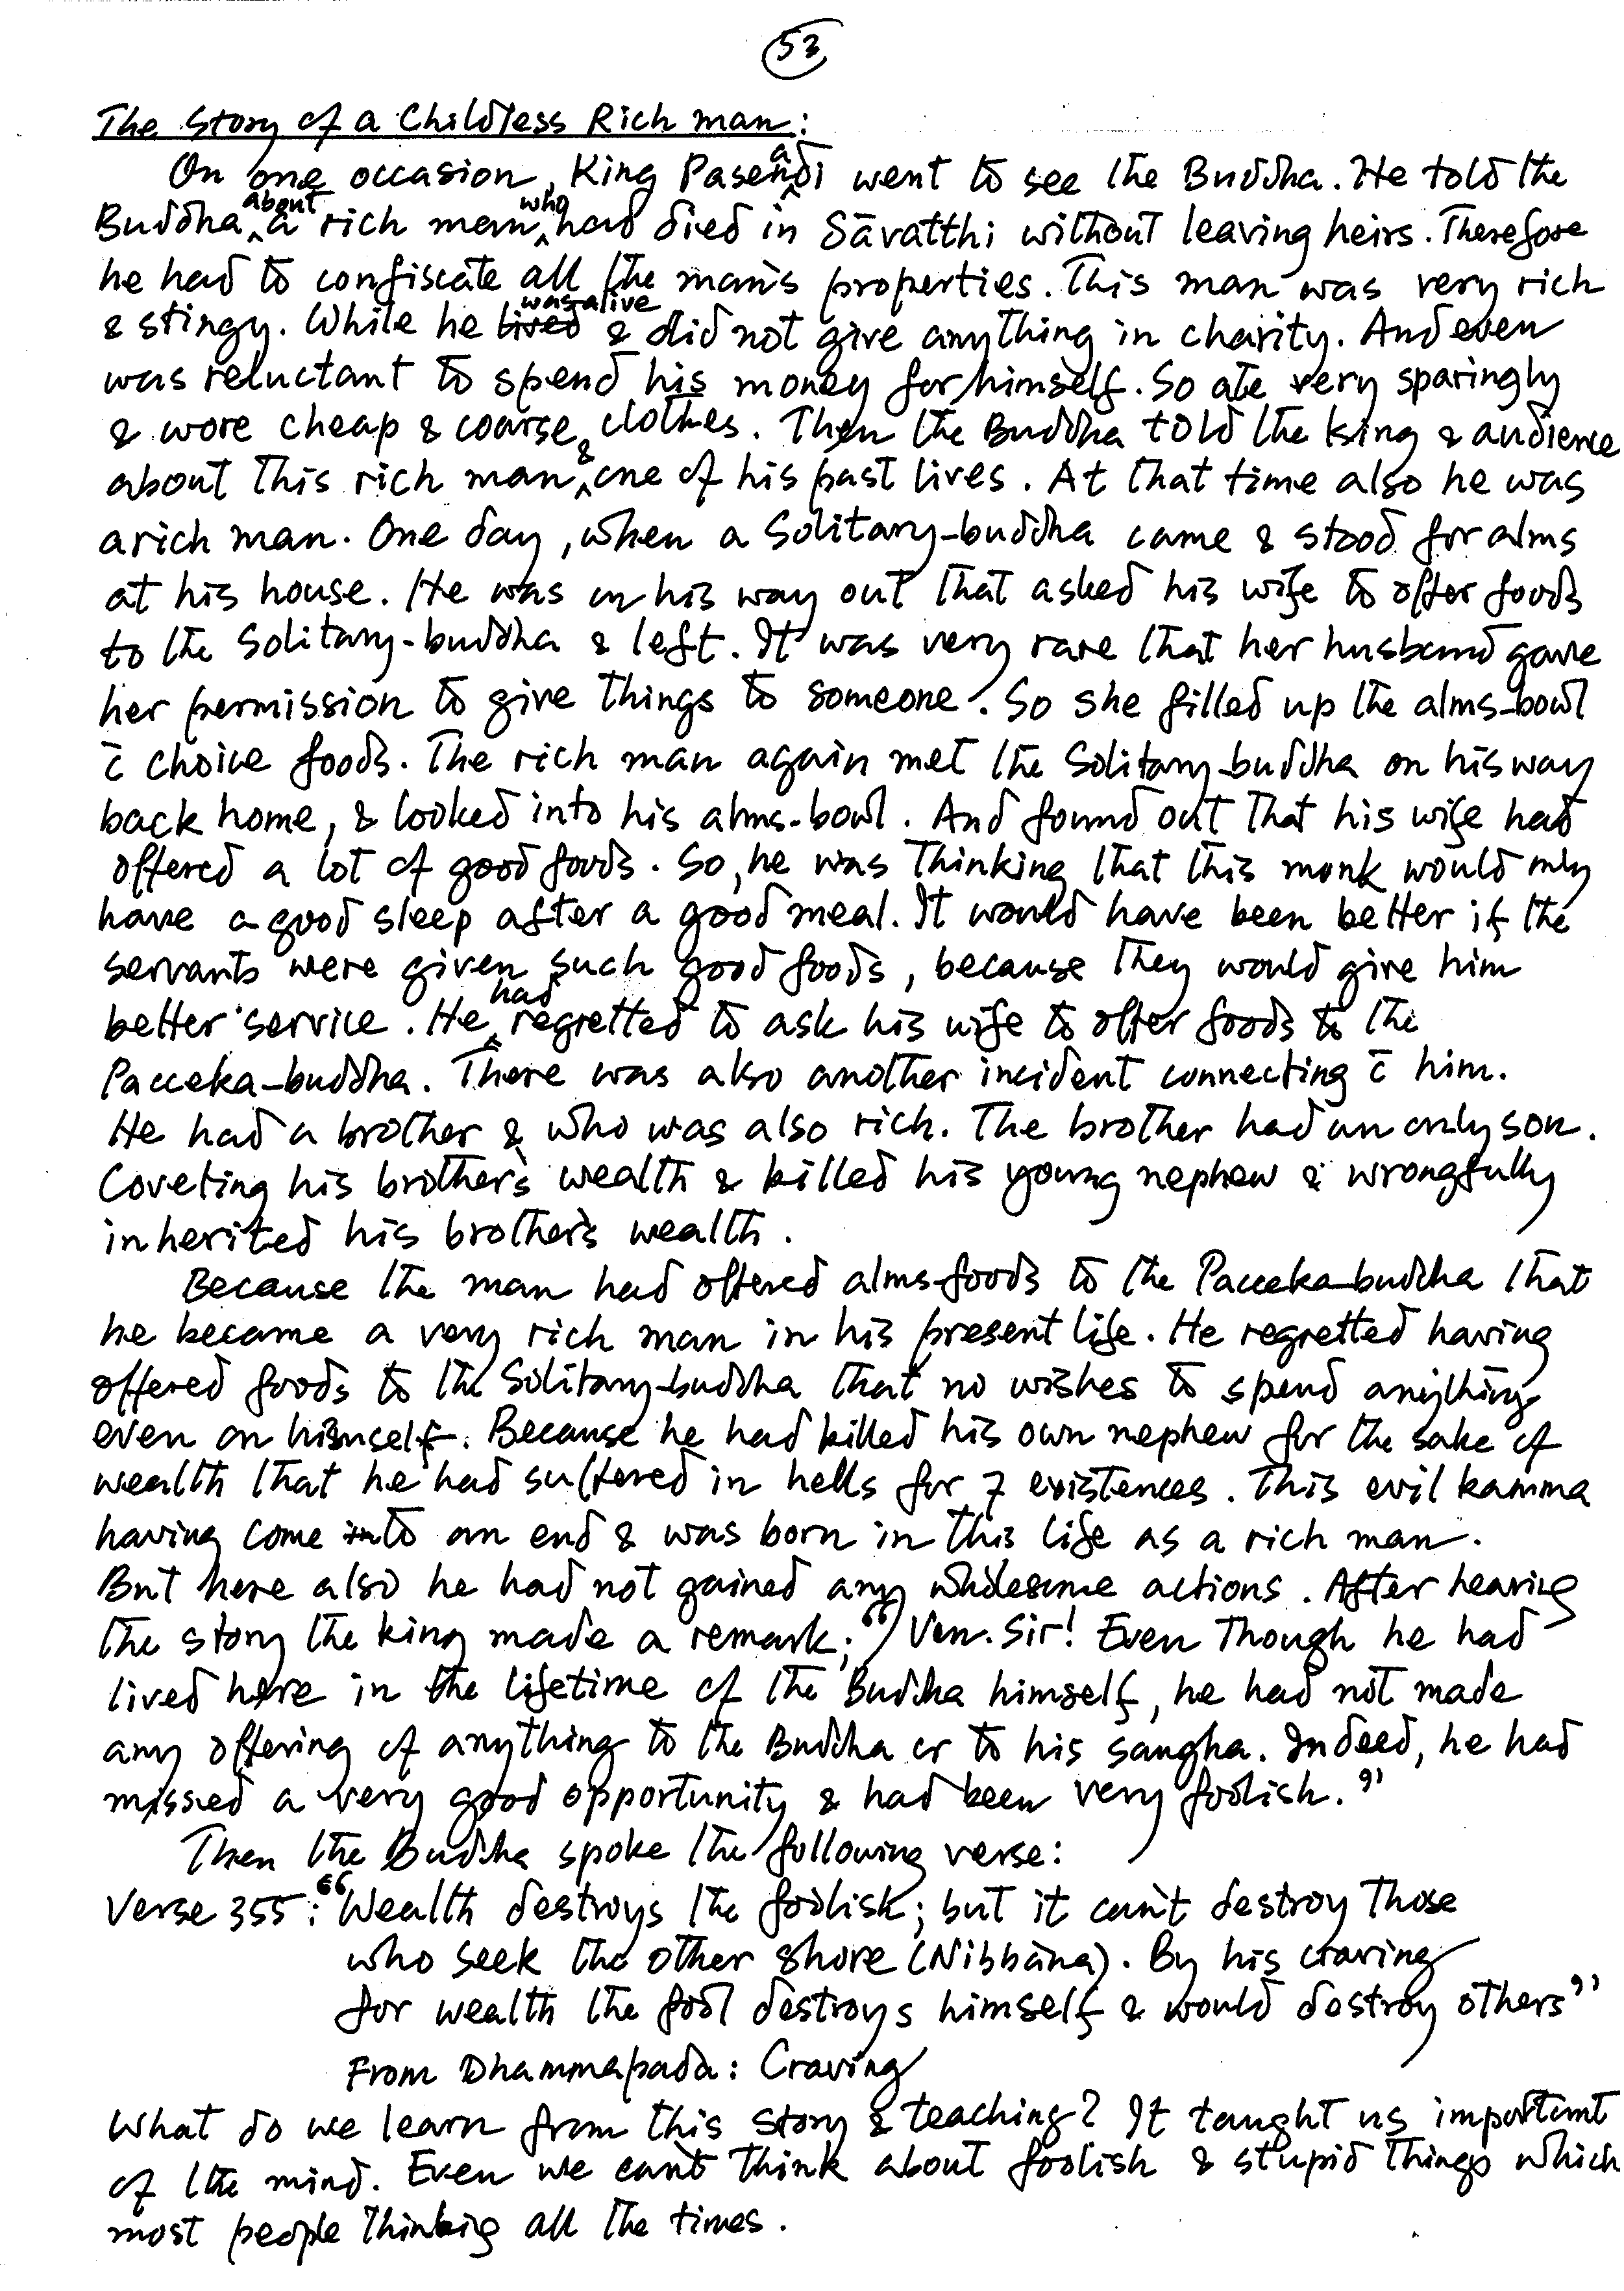 53
The Story of a Childless Rich man:
On one occasion, King Pasenadi went to see the Buddha. He told the
Buddha about a rich man who had died in Sāvatthi without leaving heirs. Therefore
he had to confiscate all the man's properties. This man was very rich
& stingy. While he lived was alive & did not give anything in charity. And even
was reluctant to spend his money for himself. So ate very sparingly
& wore cheap & coarse clothes. Then the Buddha told the king & audience
about this rich man & one of his past lives. At that time also he was
a rich man. One day, when a Solitary-buddha came & stood for alms
at his house. He was on his way out that asked his wife to offer foods
to the Solitary-buddha & left. It was very rare that her husband gave
her permission to give things to someone. So she filled up the alms-bowl
c̄ choice foods. The rich man again met the Solitary-buddha on his way
back home, & looked into his alms-bowl. And found out that his wife had
offered a lot of good foods. So, he was thinking that this monk would only
have a good sleep after a good meal. It would have been better if the
servants were given such good foods, because they would give him
better service. He had regretted to ask his wife to offer foods to the
Pacceka-buddha. There was also another incident connecting c̄ him.
He had a brother & who was also rich. The brother had an only son.
Coveting his brother's wealth & killed his young nephew & wrongfully
inherited his brother's wealth.
Because the man had offered alms-foods to the Pacceka-buddha that
he became a very rich man in his present life. He regretted having
offered foods to the Solitary-buddha that no wishes to spend anything
even on himself. Because he had killed his own nephew for the sake of
wealth that he had suffered in hells for 7 existences. This evil kamma
having come to an end & was born in this life as a rich man.
But here also he had not gained any wholesome actions. After hearing
the story the king made a remark; "Ven. Sir! Even though he had
lived here in the lifetime of the Buddha himself, he had not made
any offering of anything to the Buddha or to his sangha. Indeed, he had
missed a very good opportunity & had been very foolish."
Then the Buddha spoke the following verse:
Verse 355: "Wealth destroys the foolish; but it can't destroy those
who seek the other shore (Nibbāna). By his craving
for wealth the fool destroys himself & would destroy others"
From Dhammapada: Craving
What do we learn from this story & teaching? It taught us important
of the mind. Even we can't think about foolish & stupid things which
most people thinking all the times.